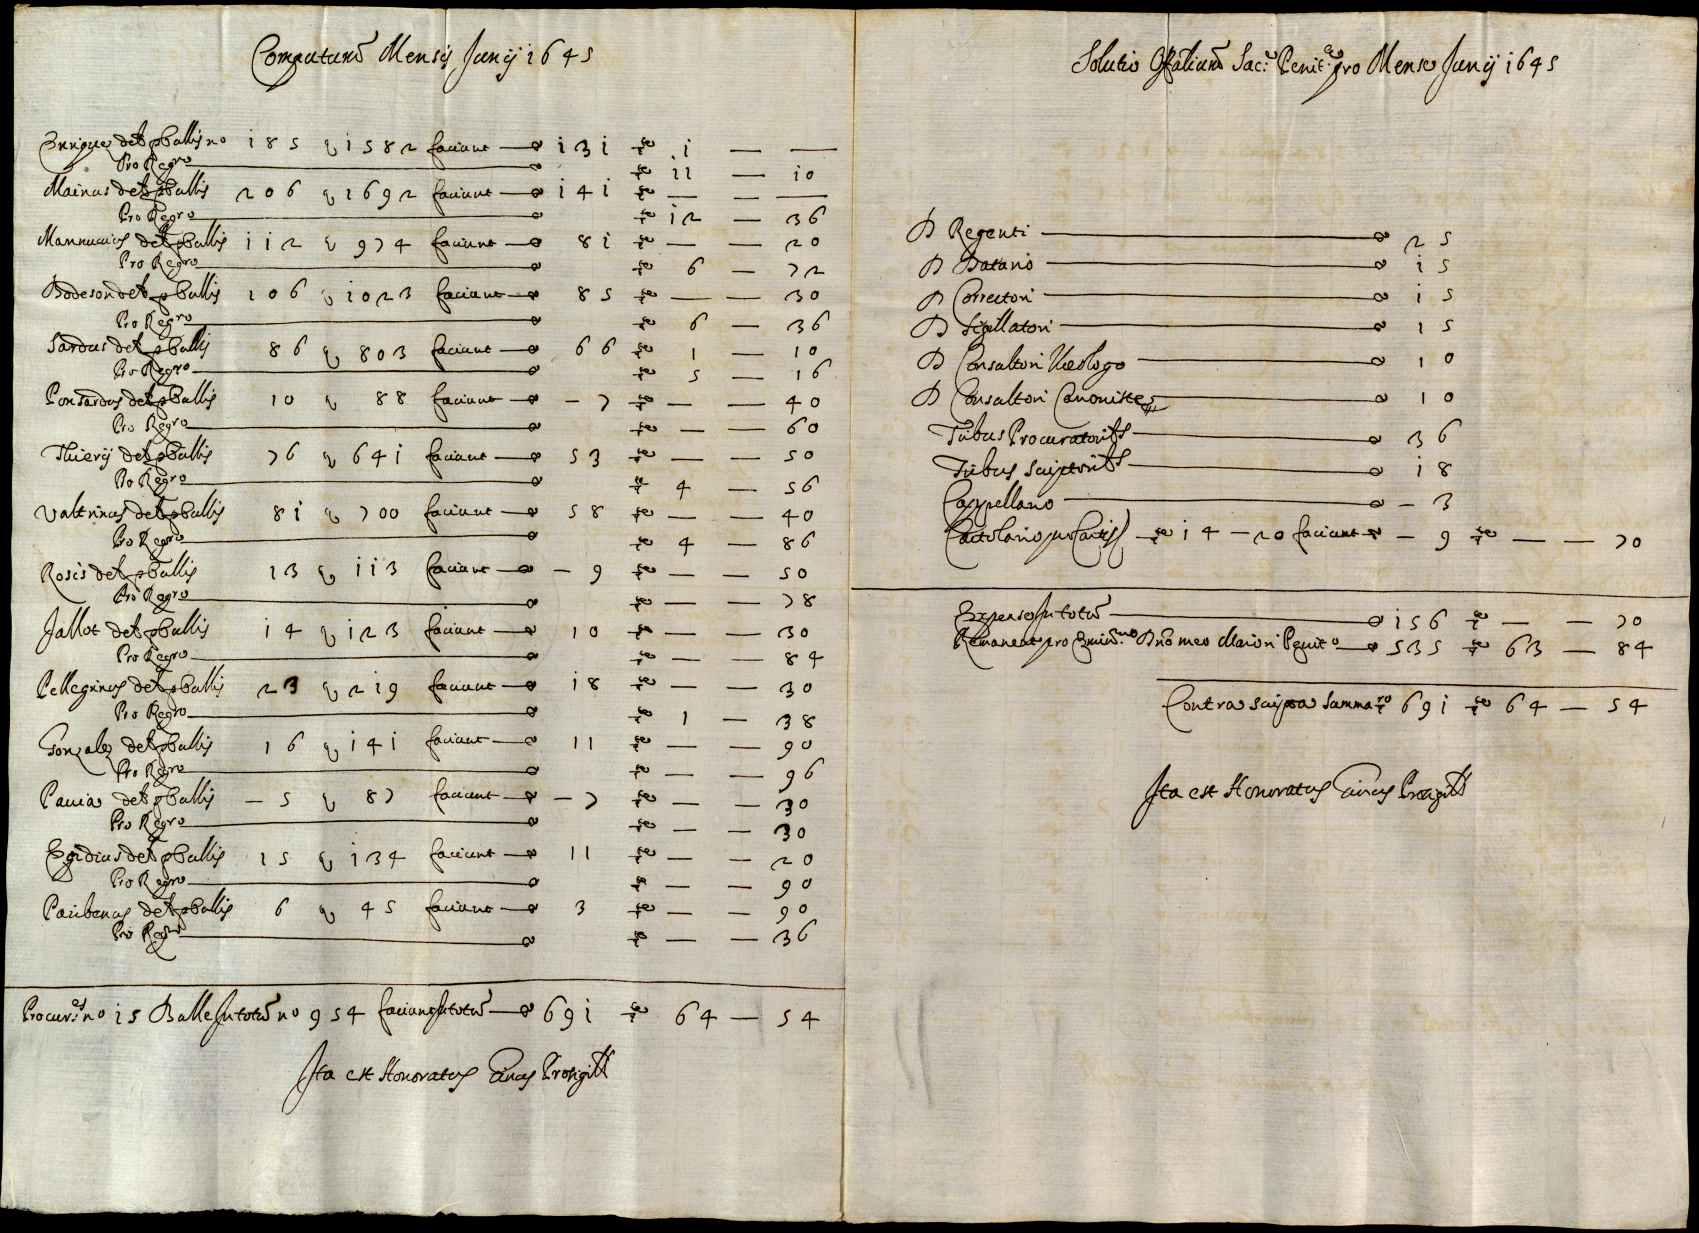 Computum Mensis Junij 1645
Enriques det p bullis no 185 q 1582 faciunt 131 1 — —
Pro Regro 11 — 10
Mainus det p bullis 206 q 1692 faciunt 141 — — —
Pro Regro 12 — 36
Mannucius det p bullis 112 q 974 faciunt 81 — — 20
Pro Regro 6 — 72
Bodeson det p bullis 106 q 1023 faciunt 85 — — 30
Pro Regro 6 — 36
Sardus det p bullis 86 q 803 faciunt 66 1 — 10
Pro Regro 5 — 16
Ponsardus det p bullis 10 q 88 faciunt – 7 — — 40
Pro Regro — — 60
Thierij det p bullis 76 q 641 faciunt 53 — — 50
Pro Regro 4 — 56
Valtrinus det p bullis 81 q 700 faciunt 58 — — 40
Pro Regro 4 — 86
Roscis det p bullis 13 q 113 faciunt – 9 — — 50
Pro Regro — — 78
Jallot det p bullis 14 q 123 faciunt 10 — — 30
Pro Regro — — 84
Pellegrinus det p bullis 23 q 219 faciunt 18 — — 30
Pro Regro 1 — 38
Gonzales det p bullis 16 q 141 faciunt 11 — — 90
Pro Regro — — 96
Pavia det p bullis – 5 q 87 faciunt – 7 — — 30
Pro Regro — — 30
Egidius det p bullis 15 q 134 faciunt 11 — — 20
Pro Regro — — 90
Paribenus det p bullis 6 q 45 faciunt 3 — — 90
Pro Regro — — 36
Procur.es no 15 Bulle in totũ no 954 faciunt in totũ 691 64 — 54
Ita est Honoratus Prosigill
Solutio Offitialium Sac.e Penit.e pro Mense Junij 1645
D Regenti 25
D Datario 15
D Correctori 15
D Sigillatori 15
D Consultori Theologo 10
D Consultori Canoniste 10
Tribus Procuratoribs 36
Tribus Scriptoribs 18
Cappellano – 3
Cartolario pro Cartis 14 – 20 faciunt – 9 — — 70
Expense in totũ 156 — — 70
Remanent pro Emin.mo Dno meo Maiori Penit.o 535 63 — 84
Contra scripta summa 691 64 — 54
Ita est Honoratus Prosigill